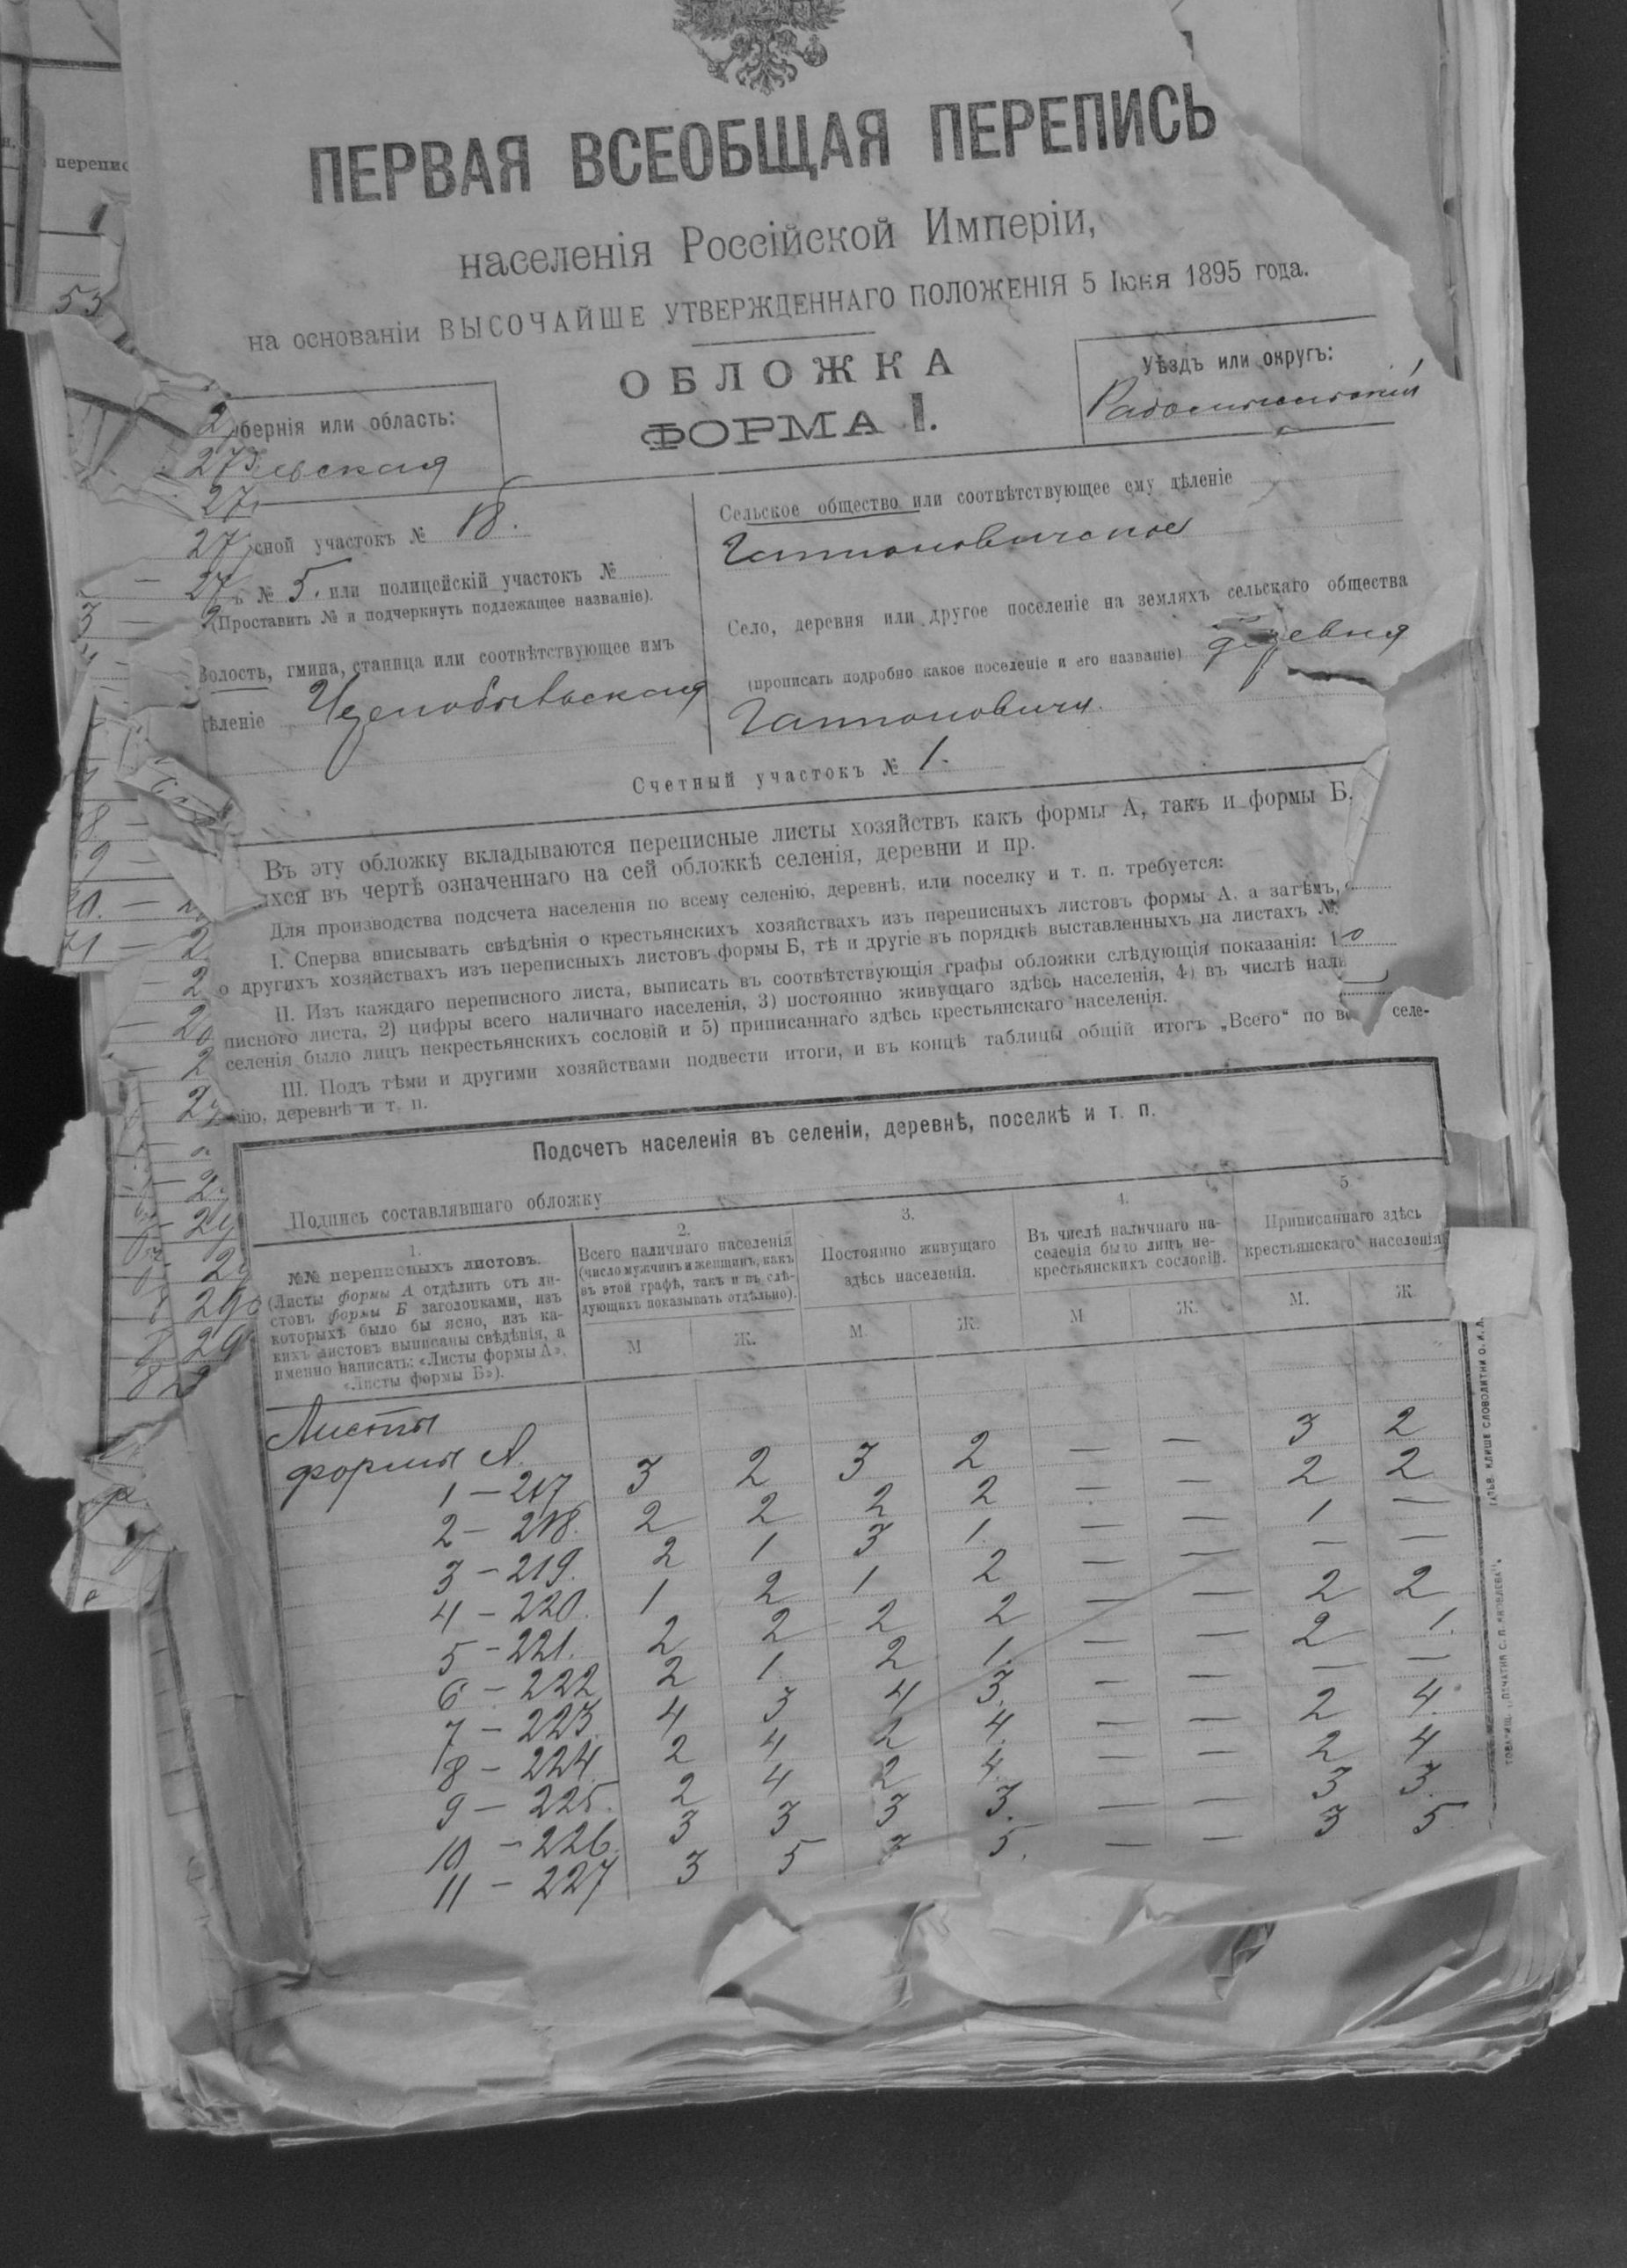 ПЕРВАЯ ВСЕОБЩАЯ ПЕРЕПИСЬ
населенія Россійской Имперіи,
на основаніи ВЫСОЧАЙШЕ УТВЕРЖДЕННАГО ПОЛОЖЕНІЯ 5 Іюня 1895 года.
ОБЛОЖКА
ФОРМА I.
бернія или область:
евская
Уѣздъ или округъ:
Радомысльскій
сной участокъ № 18.
ъ № 5. или полицейскій участокъ №
(Проставить № и подчеркнуть подлежащее названіе).
Волость, гмина, станица или соотвѣтствующее имъ
дѣленіе Чернобыльская
Сельское общество или соотвѣтствующее ему дѣленіе
Гапоновичское
Село, деревня или другое поселеніе на земляхъ сельскаго общества
(прописать подробно какое поселеніе и его названіе) деревня
Гапоновичи.
Счетный участокъ № 1.
Въ эту обложку вкладываются переписные листы хозяйствъ какъ формы А, такъ и формы Б,
ихся въ чертѣ означеннаго на сей обложкѣ селенія, деревни и пр.
Для производства подсчета населенія по всему селенію, деревнѣ, или поселку и т. п. требуется:
I. Сперва вписывать свѣдѣнія о крестьянскихъ хозяйствахъ изъ переписныхъ листовъ формы А, а затѣмъ,
о другихъ хозяйствахъ изъ переписныхъ листовъ формы Б, тѣ и другіе въ порядкѣ выставленныхъ на листахъ №
II. Изъ каждаго переписного листа, выписать въ соотвѣтствующія графы обложки слѣдующія показанія: 1
писного листа, 2) цифры всего наличнаго населенія, 3) постоянно живущаго здѣсь населенія, 4) въ числѣ нали
селенія было лицъ некрестьянскихъ сословій и 5) приписаннаго здѣсь крестьянскаго населенія.
III. Подъ тѣми и другими хозяйствами подвести итоги, и въ концѣ таблицы общій итогъ „Всего“ по селе-
нію, деревнѣ и т. п.
Подсчетъ населенія въ селеніи, деревнѣ, поселкѣ и т. п.
Подпись составлявшаго обложку
1.
№№ переписныхъ листовъ.
(Листы формы А отдѣлить отъ ли-
стовъ формы Б заголовками, изъ
которыхъ было бы ясно, изъ ка-
кихъ листовъ выписаны свѣдѣнія, а
именно написать: «Листы формы А»,
«Листы формы Б»).
2.
Всего наличнаго населенія
(число мужчинъ и женщинъ, какъ
въ этой графѣ, такъ и въ слѣ-
дующихъ показывать отдѣльно).
3.
Постоянно живущаго
здѣсь населенія.
4.
Въ числѣ наличнаго на-
селенія было лицъ не-
крестьянскихъ сословій.
5
Приписаннаго здѣсь
крестьянскаго населенія
М Ж. М. Ж. М Ж. М. Ж.
Листы
формы А.
1 – 217 3 2 3 2 — — 3 2
2 – 218. 2 2 2 2 — — 2 2
3 – 219. 2 1 3 1. — — 1 —
4 – 220. 1 2 1 2 — — — —
5 – 221. 2 2 2 2 — — 2 2
6 – 222 2 1. 2 1. — — 2 1.
7 – 223. 4 3 4 3. — — — —
8 – 224. 2 4 2 4. — — 2 4.
9 – 225. 2 4 2 4. — — 2 4
10 – 226. 3 3 3 3. — — 3 3.
11 – 227 3 5 3 5. — — 3 5